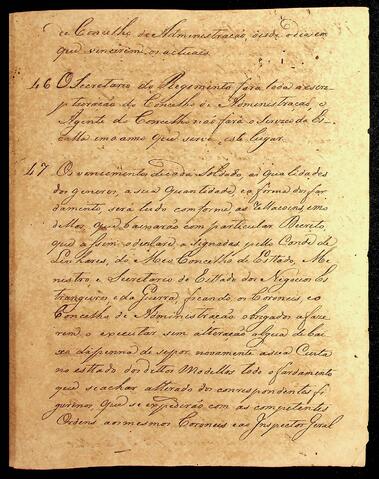 ce Concelho de Administração, desde o dia em
que vencerem, os actuaes.
46 O Secretario do Regimento fará toda a escri-
pturação do Concelho de Administração, e
Agente do Concelho não fará o serviço da Es-
calla em o anno que serve este lugar.
47 Os vencimentos de cada Soldado, as qualidades
dos generos, a sua quantidade, e a fórma do far
damento, será tudo conforme as Tabbas, e mo
dellos, que baixarão com particular Decreto,
que a fim o declare, assignadas pello Conde de
Linhares, do Meu Concelho de Estado, Me-
nistro, e Secretario de Estado dos Negocios Es
trangeiros, e da Guerra, ficando os Coroneis, e o
Concelho de Administração obrigados a faze
rem o executar sem alteração algũa debai
xo da penna de se por novamente a sua Custa
no estado dos dittos Modellos todo o fardamento
que se achar alterado dos correspondentes fi
gurinos, que se expedirão com as competentes
Ordens aos mesmos Coroneis e ao Inspector Geral